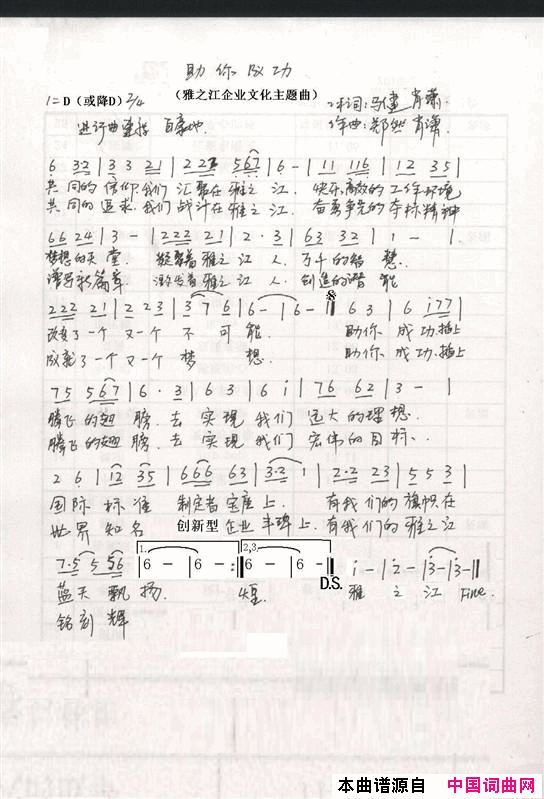 助你成功
（雅之江企业文化主题曲）
1=D（或降D）2/4
作词：马健 肖潇
作曲：郑然 肖潇
进行曲速度 自豪地
6 32 | 3 3 21 | 227 567 | 6 - | 11 116 | 12 35 |
共同的信仰,我们 汇聚在雅之江. 快乐,高效的工作环境
共同的追求,我们 战斗在雅之江. 奋勇争先的夺标精神
66 24 | 3 - | 222 21 | 2· 3 | 63 32 | 1 - |
梦想的天堂. 凝聚着雅之江人. 万千的智慧.
谱写新篇章. 激发着雅之江人. 创造的潜能
222 21 | 2 23 | 376 | 6 - | 6 - || 6 3 | 6 i77 |
改变了一个又一个不可能. 助你成功,插上
成就了一个又一个梦想. 助你成功,插上
75 567 | 6· 3 | 6 3 | 6 i | 76 62 | 3 - |
腾飞的翅膀. 去实现我们远大的理想.
腾飞的翅膀. 去实现我们宏伟的目标.
2 6 | 12 35 | 666 63 | 3·2 1 | 2·2 23 | 5 5 3 |
国际标准 制定者宝座上. 有我们的旗帜在
世界知名 创新型企业丰碑上.有我们的雅之江
7·5 5 56 | 1. 6 - | 6 - :|| 2,3. 6 - | 6 - || D.S. i - | 2 - | 3 - | 3 - ||
蓝天飘扬. 煌. 雅之江 Fine.
铭刻辉
本曲谱源自 中国词曲网